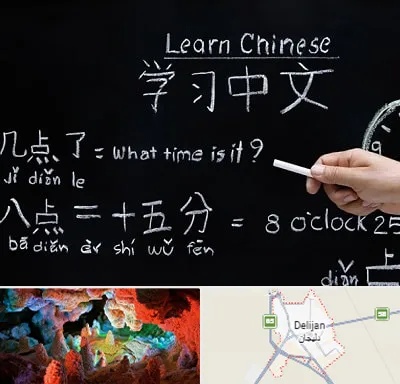 Learn Chinese
学习中文
9
几点了 = What time is it?
jǐ diǎn le
八点二十五分 = 8 o'clock 25
bā diǎn èr shí wǔ fēn
diǎn 上
Delijan
دلیجان